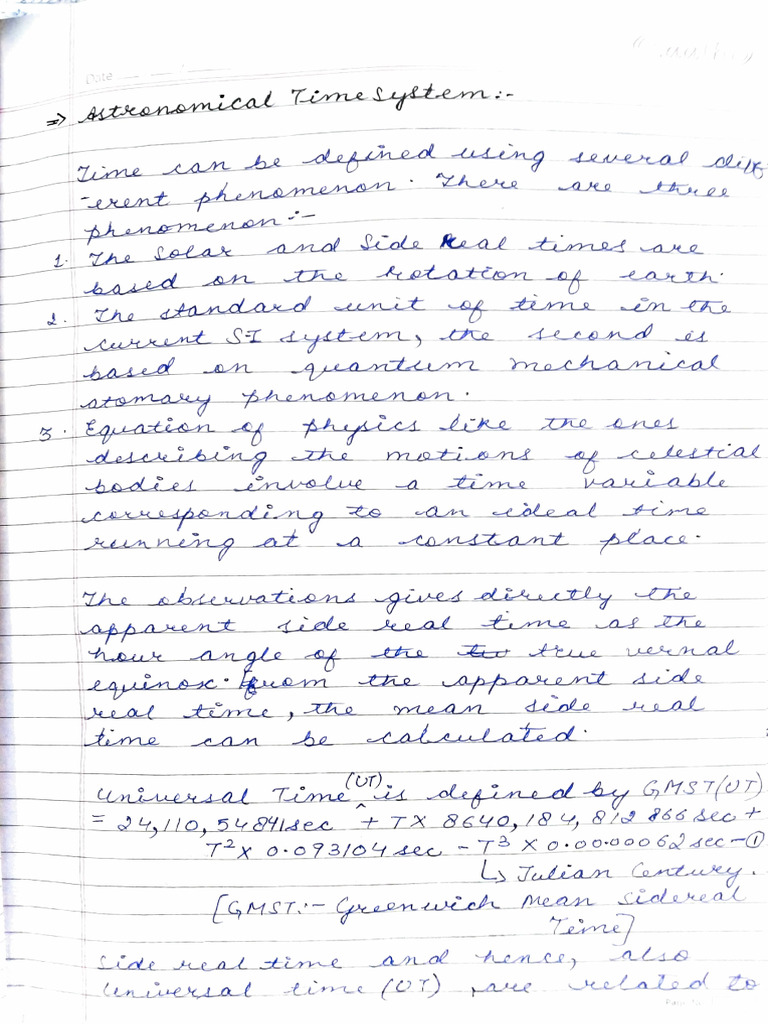 Date
⇒ Astronomical Time System:-
Time can be defined using several diff
-erent phenomenon. There are three
phenomenon:-
1. The Solar and Side Real times are
based on the rotation of earth.
2. The standard unit of time in the
current S-I system, the second is
based on quantum mechanical
atomary phenomenon.
3. Equation of physics like the ones
describing the motions of celestial
bodies involve a time variable
corresponding to an ideal time
running at a constant place.
The observations gives directly the
apparent side real time as the
hour angle of the true vernal
equinox. From the apparent side
real time, the mean side real
time can be calculated.
Universal Time (UT) is defined by GMST(UT)
= 24,110,54841sec + T X 8640,184,812866 sec +
T² X 0.093104 sec - T³ X 0.0000062 sec - ①
↳ Julian Century.
[GMST:- Greenwich Mean Sidereal
Time]
Side real time and hence, also
Universal time (UT) are related to